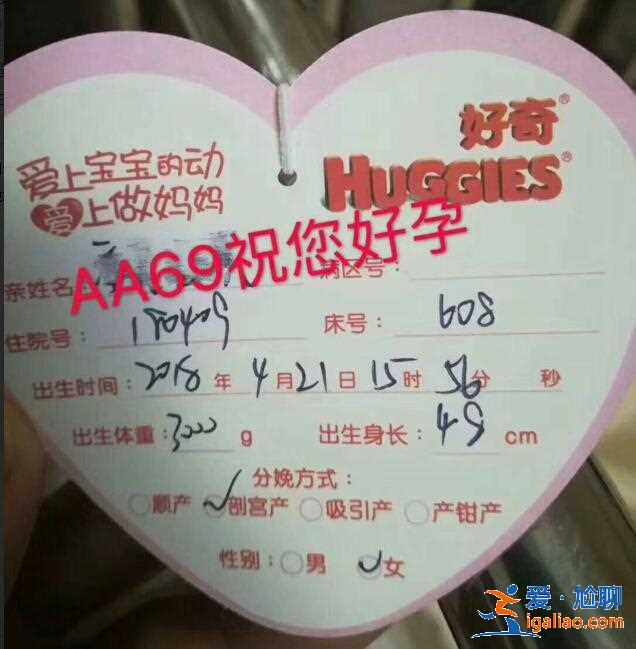 好奇®
爱上宝宝的动
HUGGIES®
爱上做妈妈
AA69祝您好孕
亲姓名
病区号：
住院号：180409
床号：608
出生时间：2018年4月21日15时56分 秒
出生体重：3000g 出生身长：49cm
分娩方式：
顺产 剖宫产 吸引产 产钳产
性别：男 女
爱·尬聊
igaliao.com